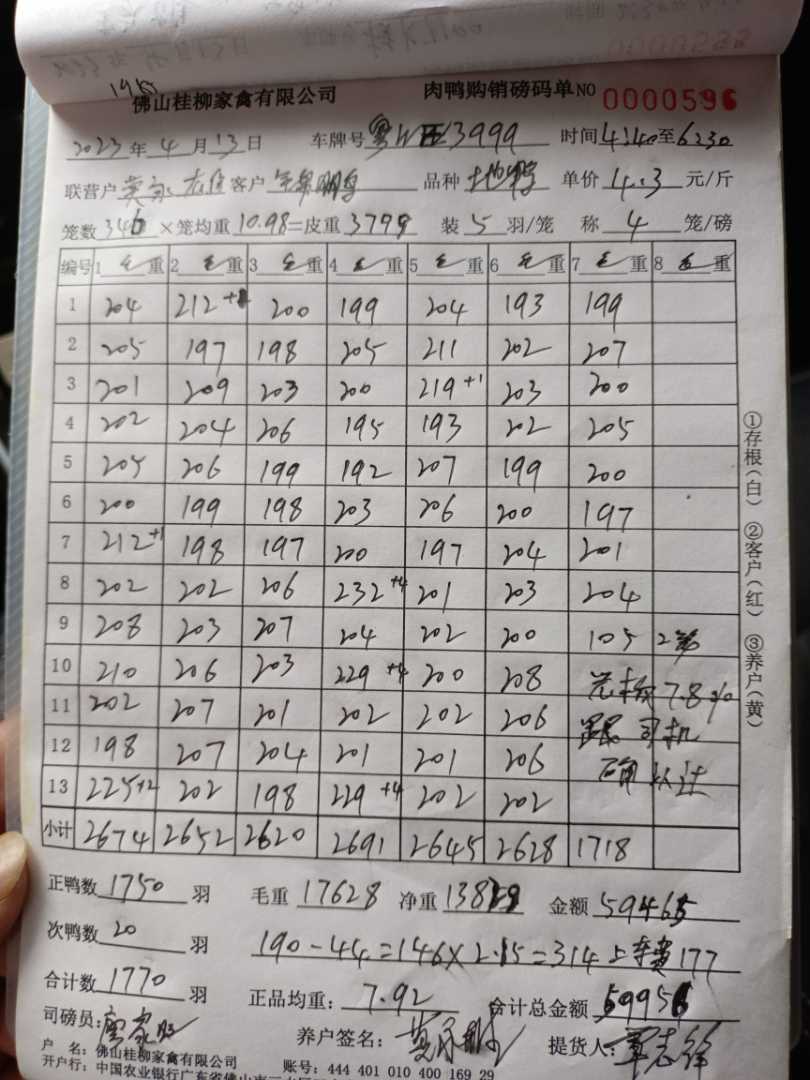 佛山桂柳家禽有限公司 肉鸭购销磅码单 NO 0000596
2023年4月13日 车牌号 粤W 13999 时间 4:40至6:30
联营户 客户 品种 土地鸭 单价 4.3 元/斤
笼数 346 ×笼均重 10.98=皮重 3799 装 5 羽/笼 称 4 笼/磅
编号 1 毛重 2 毛重 3 毛重 4 毛重 5 毛重 6 毛重 7 毛重 8 毛重
1 204 212 200 199 204 193 199
2 205 197 198 205 211 202 207
3 201 209 203 200 219+1 203 200
4 202 204 206 195 193 202 205
5 205 206 199 192 207 199 200
6 200 199 198 203 206 200 197
7 212+1 198 197 200 197 204 201
8 202 202 206 232+4 201 203 204
9 208 203 207 204 202 200 105 2笼
10 210 206 203 229+4 200 208 7.8%
11 202 207 201 202 202 206 跟司机
12 198 207 204 201 201 206 确认过
13 225+2 202 198 229+4 202 202
小计 2674 2652 2620 2691 2645 2628 1718
正鸭数 1750 羽 毛重 17628 净重 13829 金额 59465
次鸭数 20 羽 190-44=146×2.15=314 上车费177
合计数 1770 羽 正品均重: 7.92 合计总金额
司磅员: 养户签名: 提货人:
户 名: 佛山桂柳家禽有限公司 账号: 444 401 010 400 169 29
开户行: 中国农业银行广东省佛山市
①存根(白) ②客户(红) ③养户(黄)